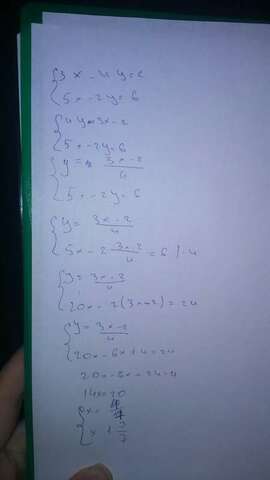 3x - 4y = 2
5x - 2y = 6
4y = 3x - 2
5x - 2y = 6
y = 3x - 2 / 4
5x - 2y = 6
y = 3x - 2 / 4
5x - 2 3x - 2 / 4 = 6 | · 4
y = 3x - 2 / 4
20x - 2(3x - 2) = 24
y = 3x - 2 / 4
20x - 6x + 4 = 24
20x - 6x = 24 - 4
14x = 20
x =